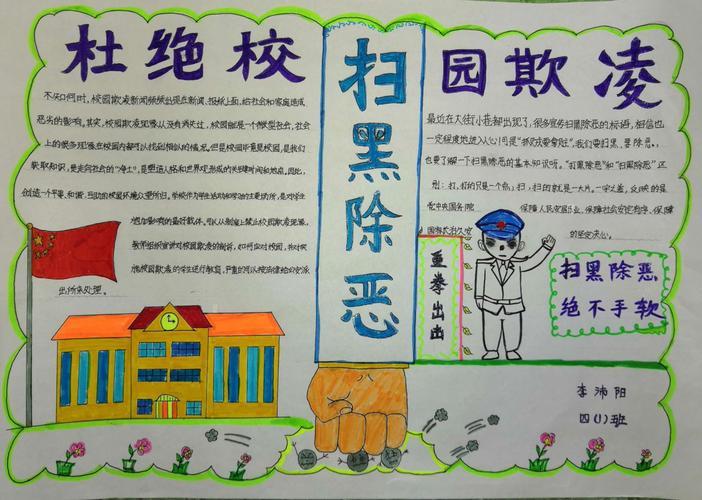 杜绝校
扫黑除恶
园欺凌
不知何时,校园欺凌新闻频频出现在新闻、报纸上面,给社会和家庭造成
恶劣的影响。其实,校园欺凌现象从没有消失过,校园就是一个微型社会,社会
上的很多现象在校园内都可以找到相似的情况。但是校园毕竟是校园,是我们
获取知识,是走向社会的"净土",是塑造人格和世界观形成的关键时间和地点,因此,
创造一个平等、和谐、互助的校园环境众望所归。学校作为学生活动和学习的主要场所,是对学生
施加影响的最好载体。可以从制度上禁止校园欺凌现象,
教师组织宣讲对校园欺凌的制裁,如何应对校园,和对实
施校园欺凌的学生进行教育,严重的可以按法律给公安派
出所来处理。
最近在大街小巷都出现了,很多宣传扫黑除恶的标语,相信也
一定程度地进入人心!可是"抓欢欢要拿恶",我们要扫黑、要除恶。
也要了解一下扫黑除恶的基本知识呀。"打黑除恶"和"扫黑除恶"区
别:打,打的只是一个点;扫,扫的就是一大片。一字之差,
是党中央国务院 保障人民安居乐业、保障社会安定有序、保障
国家长治久安 的坚定决心。
重拳出击
扫黑除恶
绝不手软
李沛阳
四(1)班